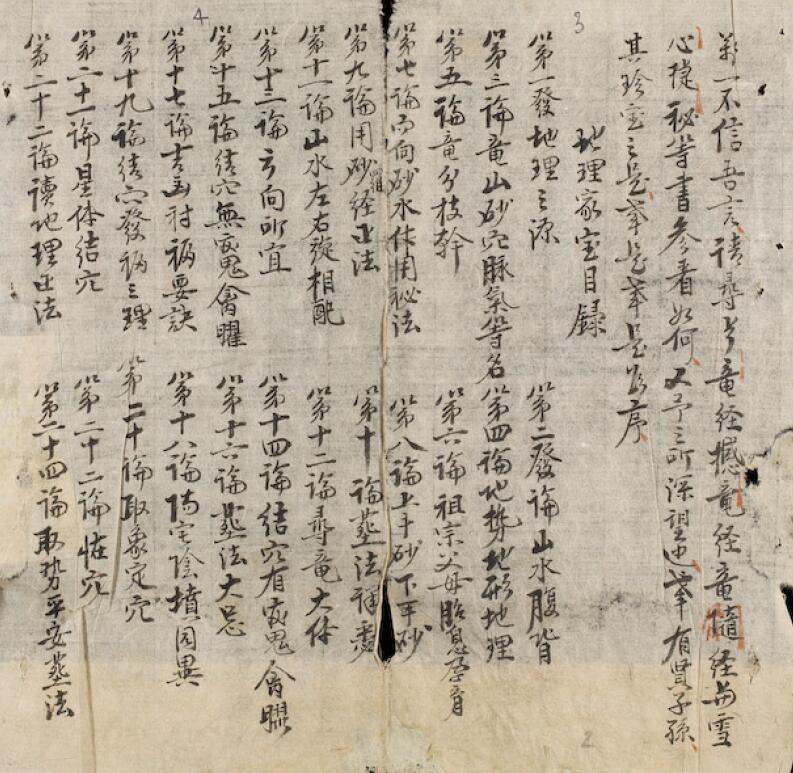 3
4
2
不信吾言請尋竜経撼竜経竜髓経与雪
心秘等書参看如何又予之所深望也有賢子孫
其珍宝之是幸是幸是为序
地理家宝目録
第一發地理之源 第二發論山水腹背
第三論竜山砂穴脉氣等名 第四論地勢地形地理
第五論竜分枝幹 第六論祖宗父母胎息孕育
第七論向砂水作用秘法 第八論上手砂下手砂
第九論用砂羅経正法 第十論葬法
第十一論山水左右旋相配 第十二論尋竜大体
第十三論方向所宜 第十四論結穴有鬼禽曜
第十五論結穴無鬼禽曜 第十六論葬法大忌
第十七論吉凶禍要訣 第十八論陽宅陰墳同異
第十九論結穴發福之理 第二十論取象定穴
第二十一論星体結穴 第二十二論怪穴
第二十二論讀地理正法 第二十四論取勢平安葬法